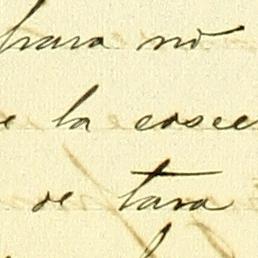 para no
e la cosec
de tara